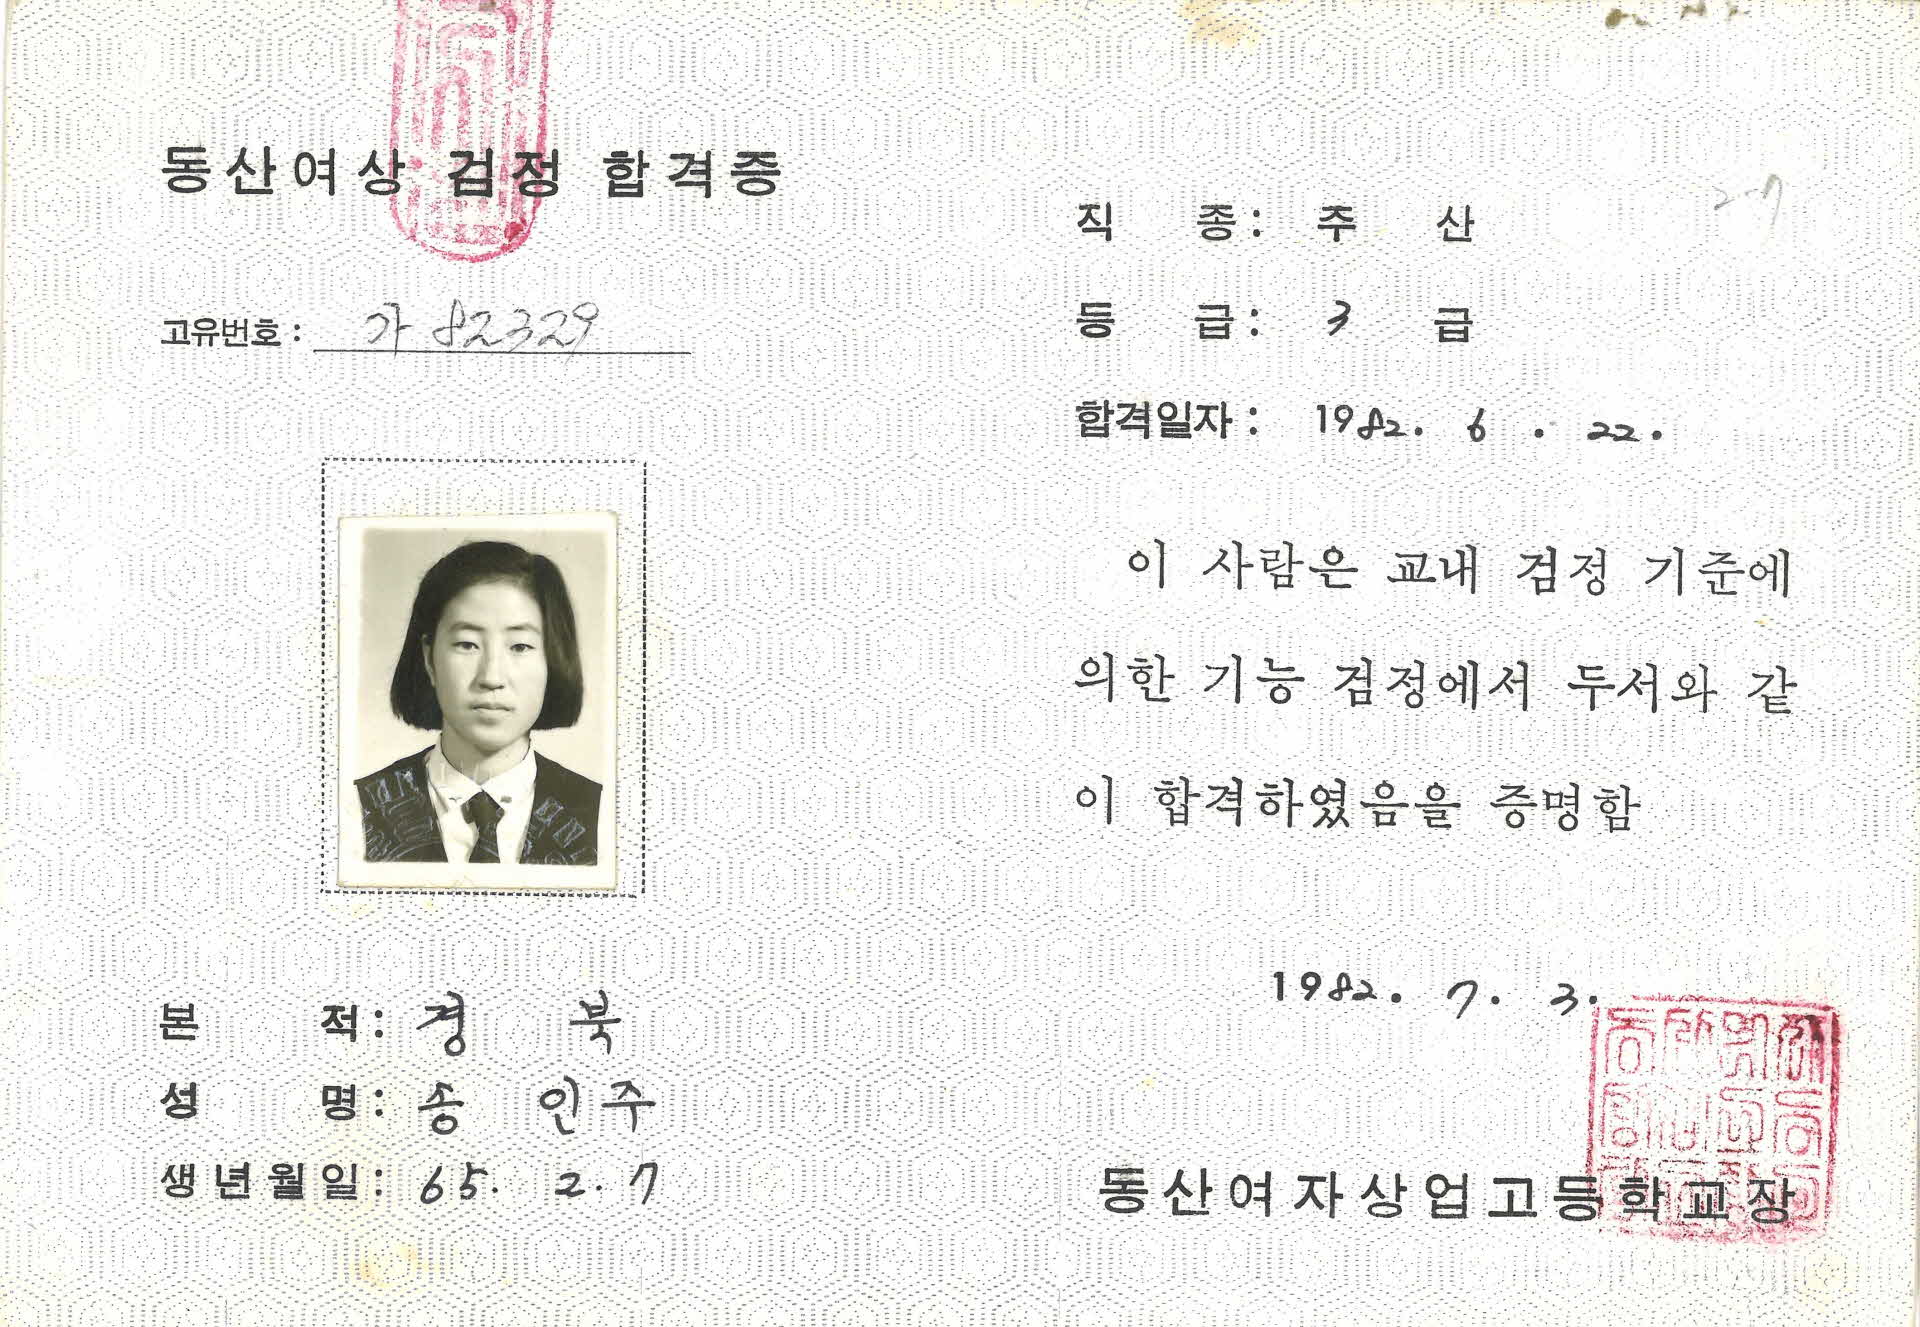 동산여상 검정 합격증
고유번호 : 가 82329
본 적 : 경 북
성 명 : 송 인주
생년월일 : 65. 2. 7
2-7
직 종 : 주 산
등 급 : 3 급
합격일자 : 1982. 6 . 22.
이 사람은 교내 검정 기준에
의한 기능 검정에서 두서와 같
이 합격하였음을 증명함
1982. 7. 3.
동산여자상업고등학교장